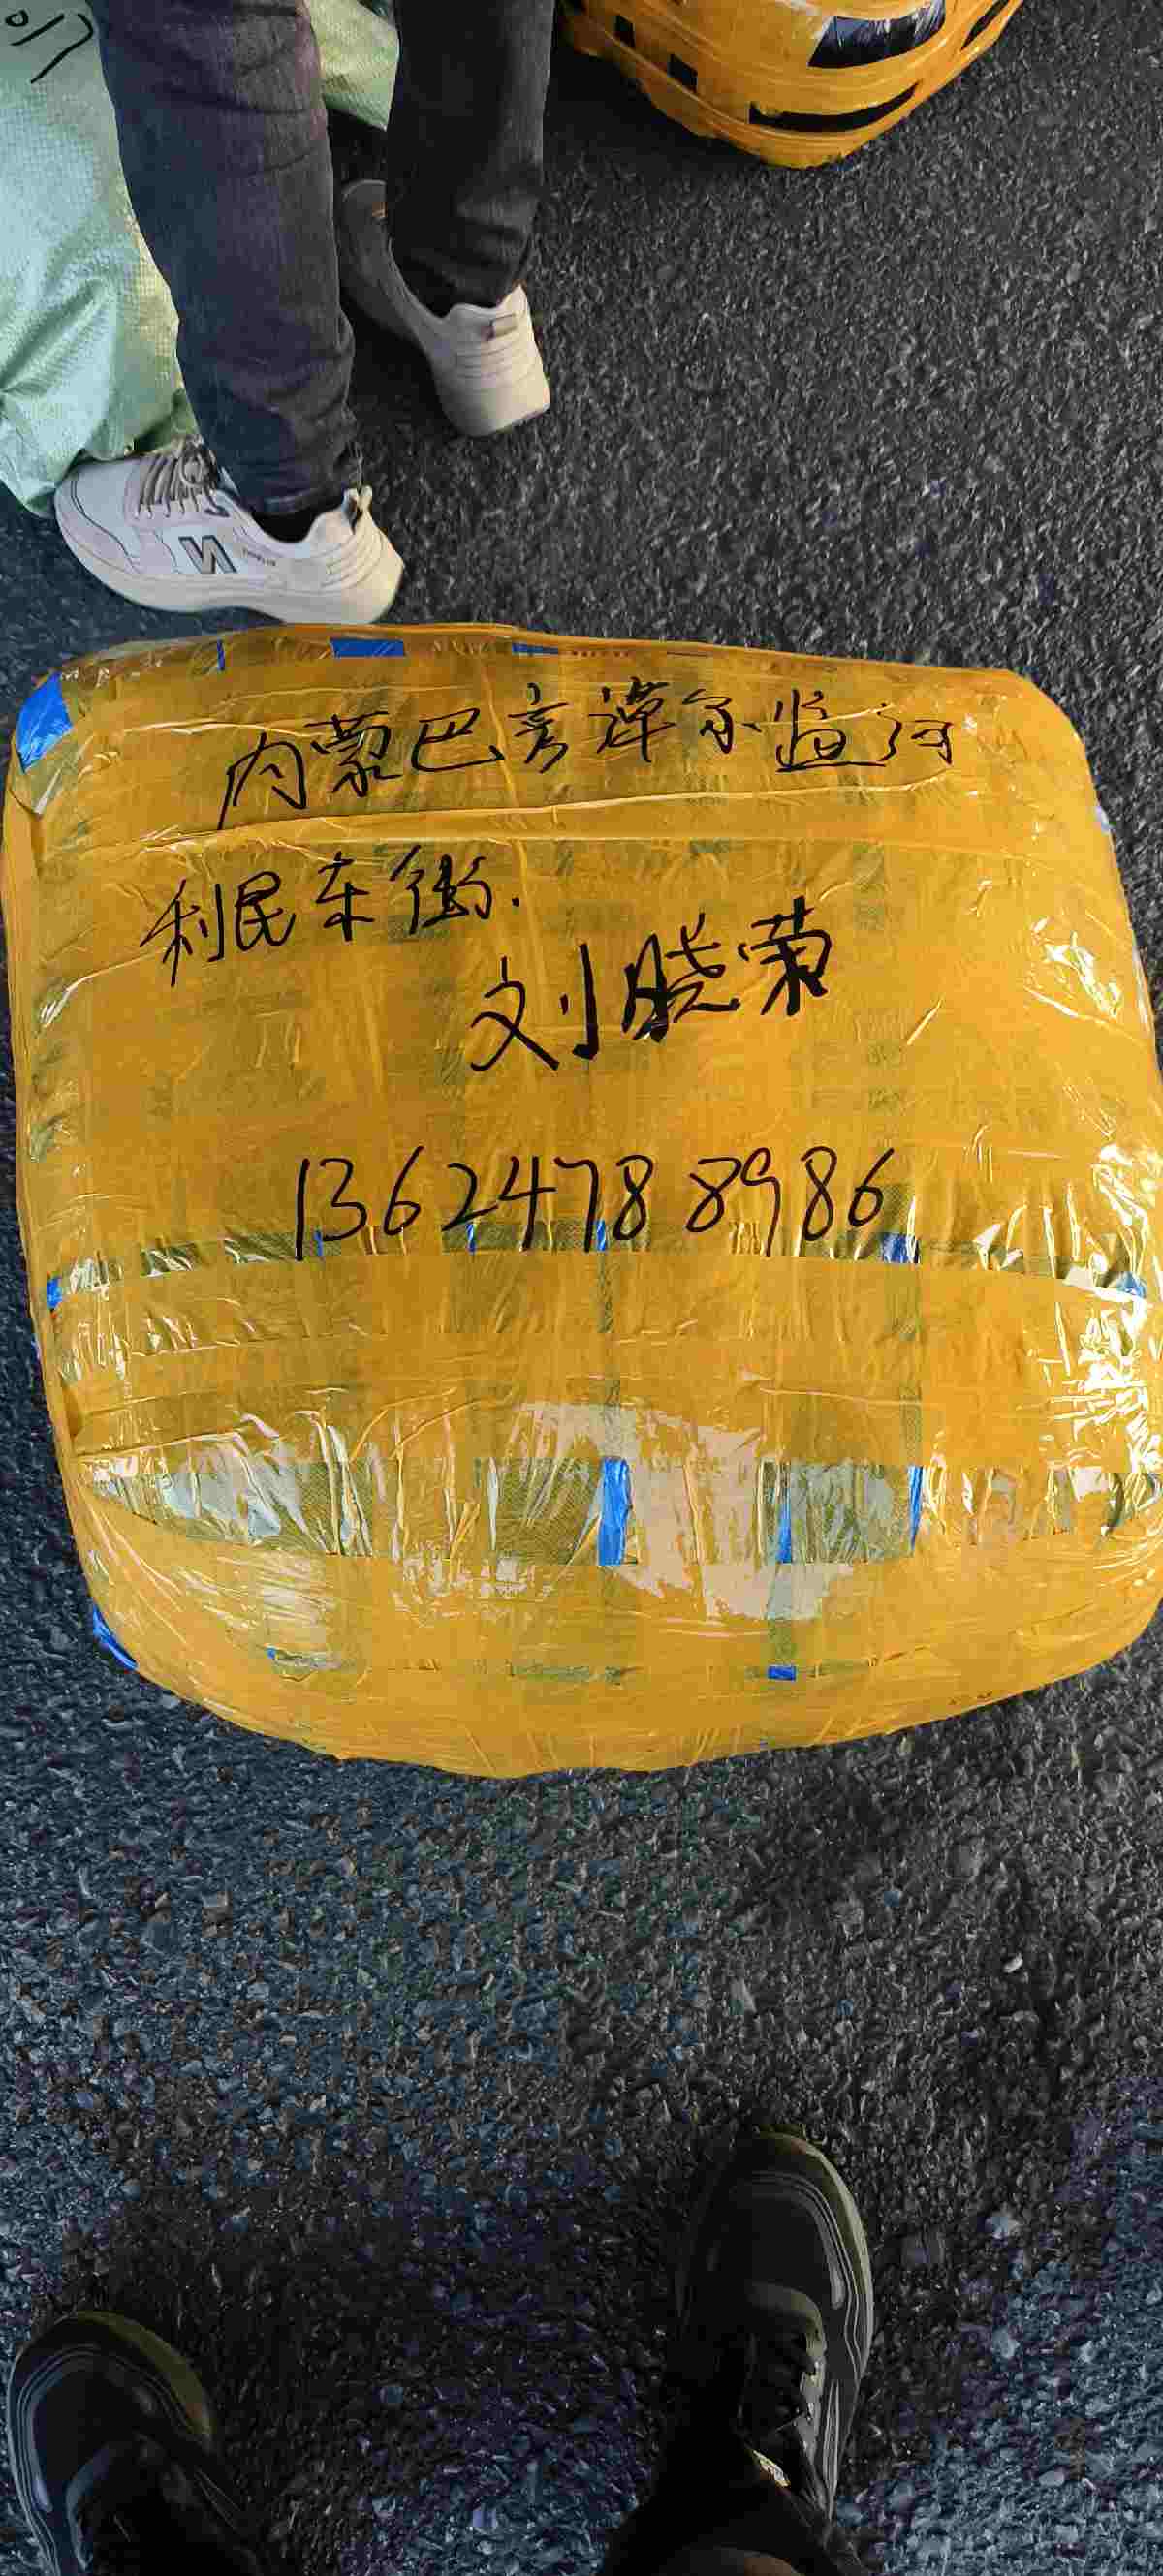 内蒙巴彦淖尔临河
利民东街.
刘晓荣
13624788986